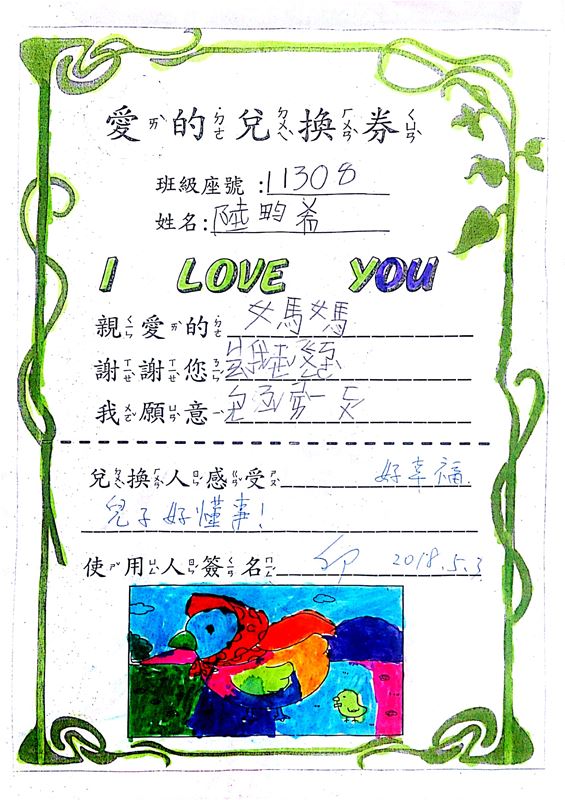 愛ㄞˋ的˙ㄉㄜ兌ㄉㄨㄟˋ換ㄏㄨㄢˋ券ㄑㄩㄢˋ
班級座號：11308
姓名：陸畇希
I LOVE YOU
親ㄑㄧㄣ愛ㄞˋ的˙ㄉㄜ媽媽
謝ㄒㄧㄝˋ謝ㄒㄧㄝˋ您ㄋㄧㄣˊ
我ㄨㄛˇ願ㄩㄢˋ意ㄧˋ
兌ㄉㄨㄟˋ換ㄏㄨㄢˋ人ㄖㄣˊ感ㄍㄢˇ受ㄕㄡˋ好幸福
兒子好懂事!
使ㄕˇ用ㄩㄥˋ人ㄖㄣˊ簽ㄑㄧㄢ名ㄇㄧㄥˊ 2018.5.3